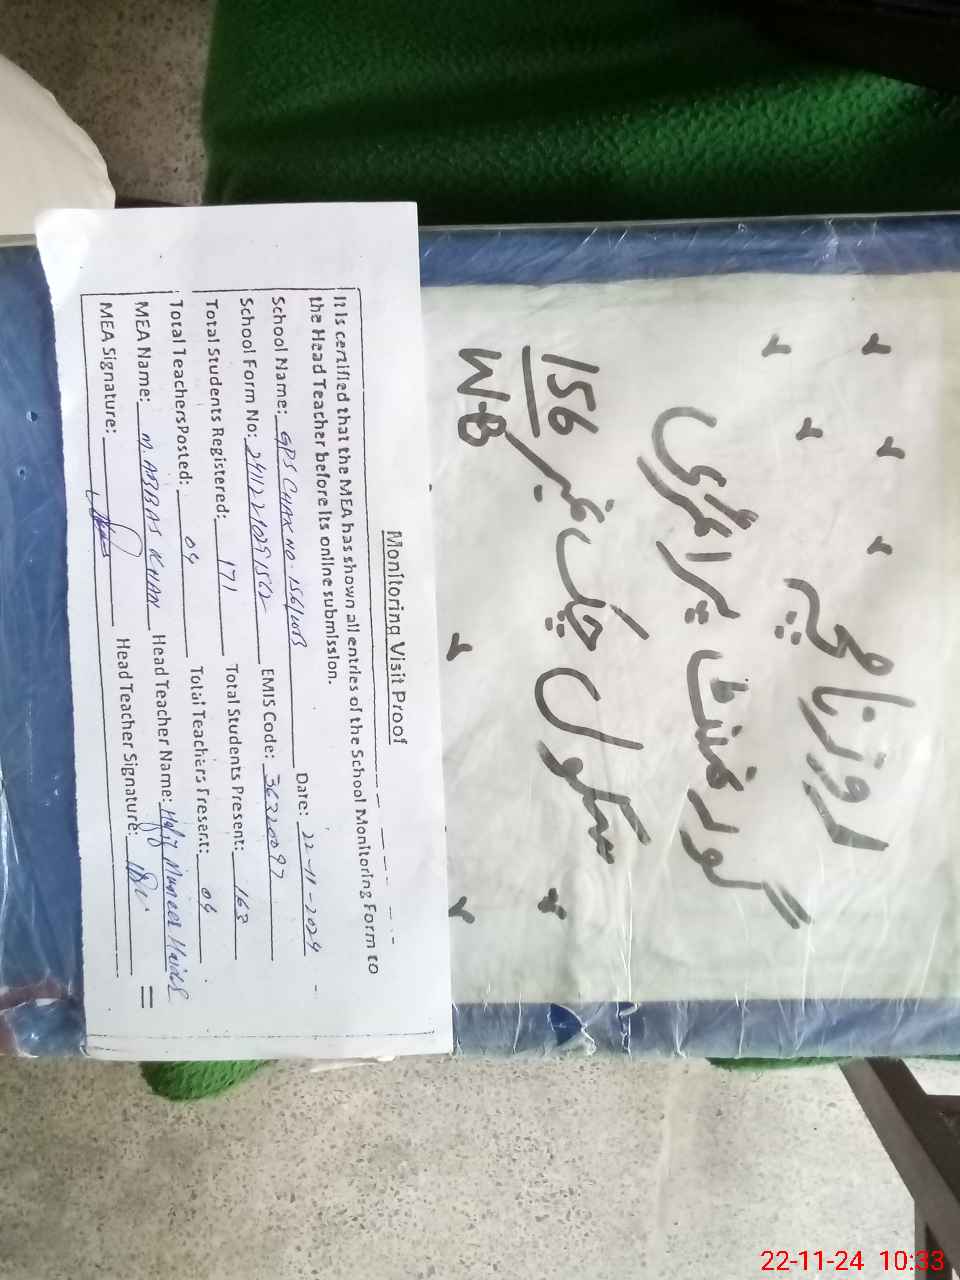 روزنامچہ
گورنمنٹ پرائمری
سکول چک نمبر 156
W-B
Monitoring Visit Proof
It is certified that the MEA has shown all entries of the School Monitoring Form to
the Head Teacher before its online submission.
School Name: GPS CHAK NO. 156/WB Date: 22-11-2024
School Form No: EMIS Code: 36320097
Total Students Registered: 171 Total Students Present: 163
Total Teachers Posted: 04 Total Teachers Present: 04
MEA Name: M. ABBAS KHAN Head Teacher Name: Hafiz Muneer Haider
MEA Signature: Head Teacher Signature:
22-11-24 10:33